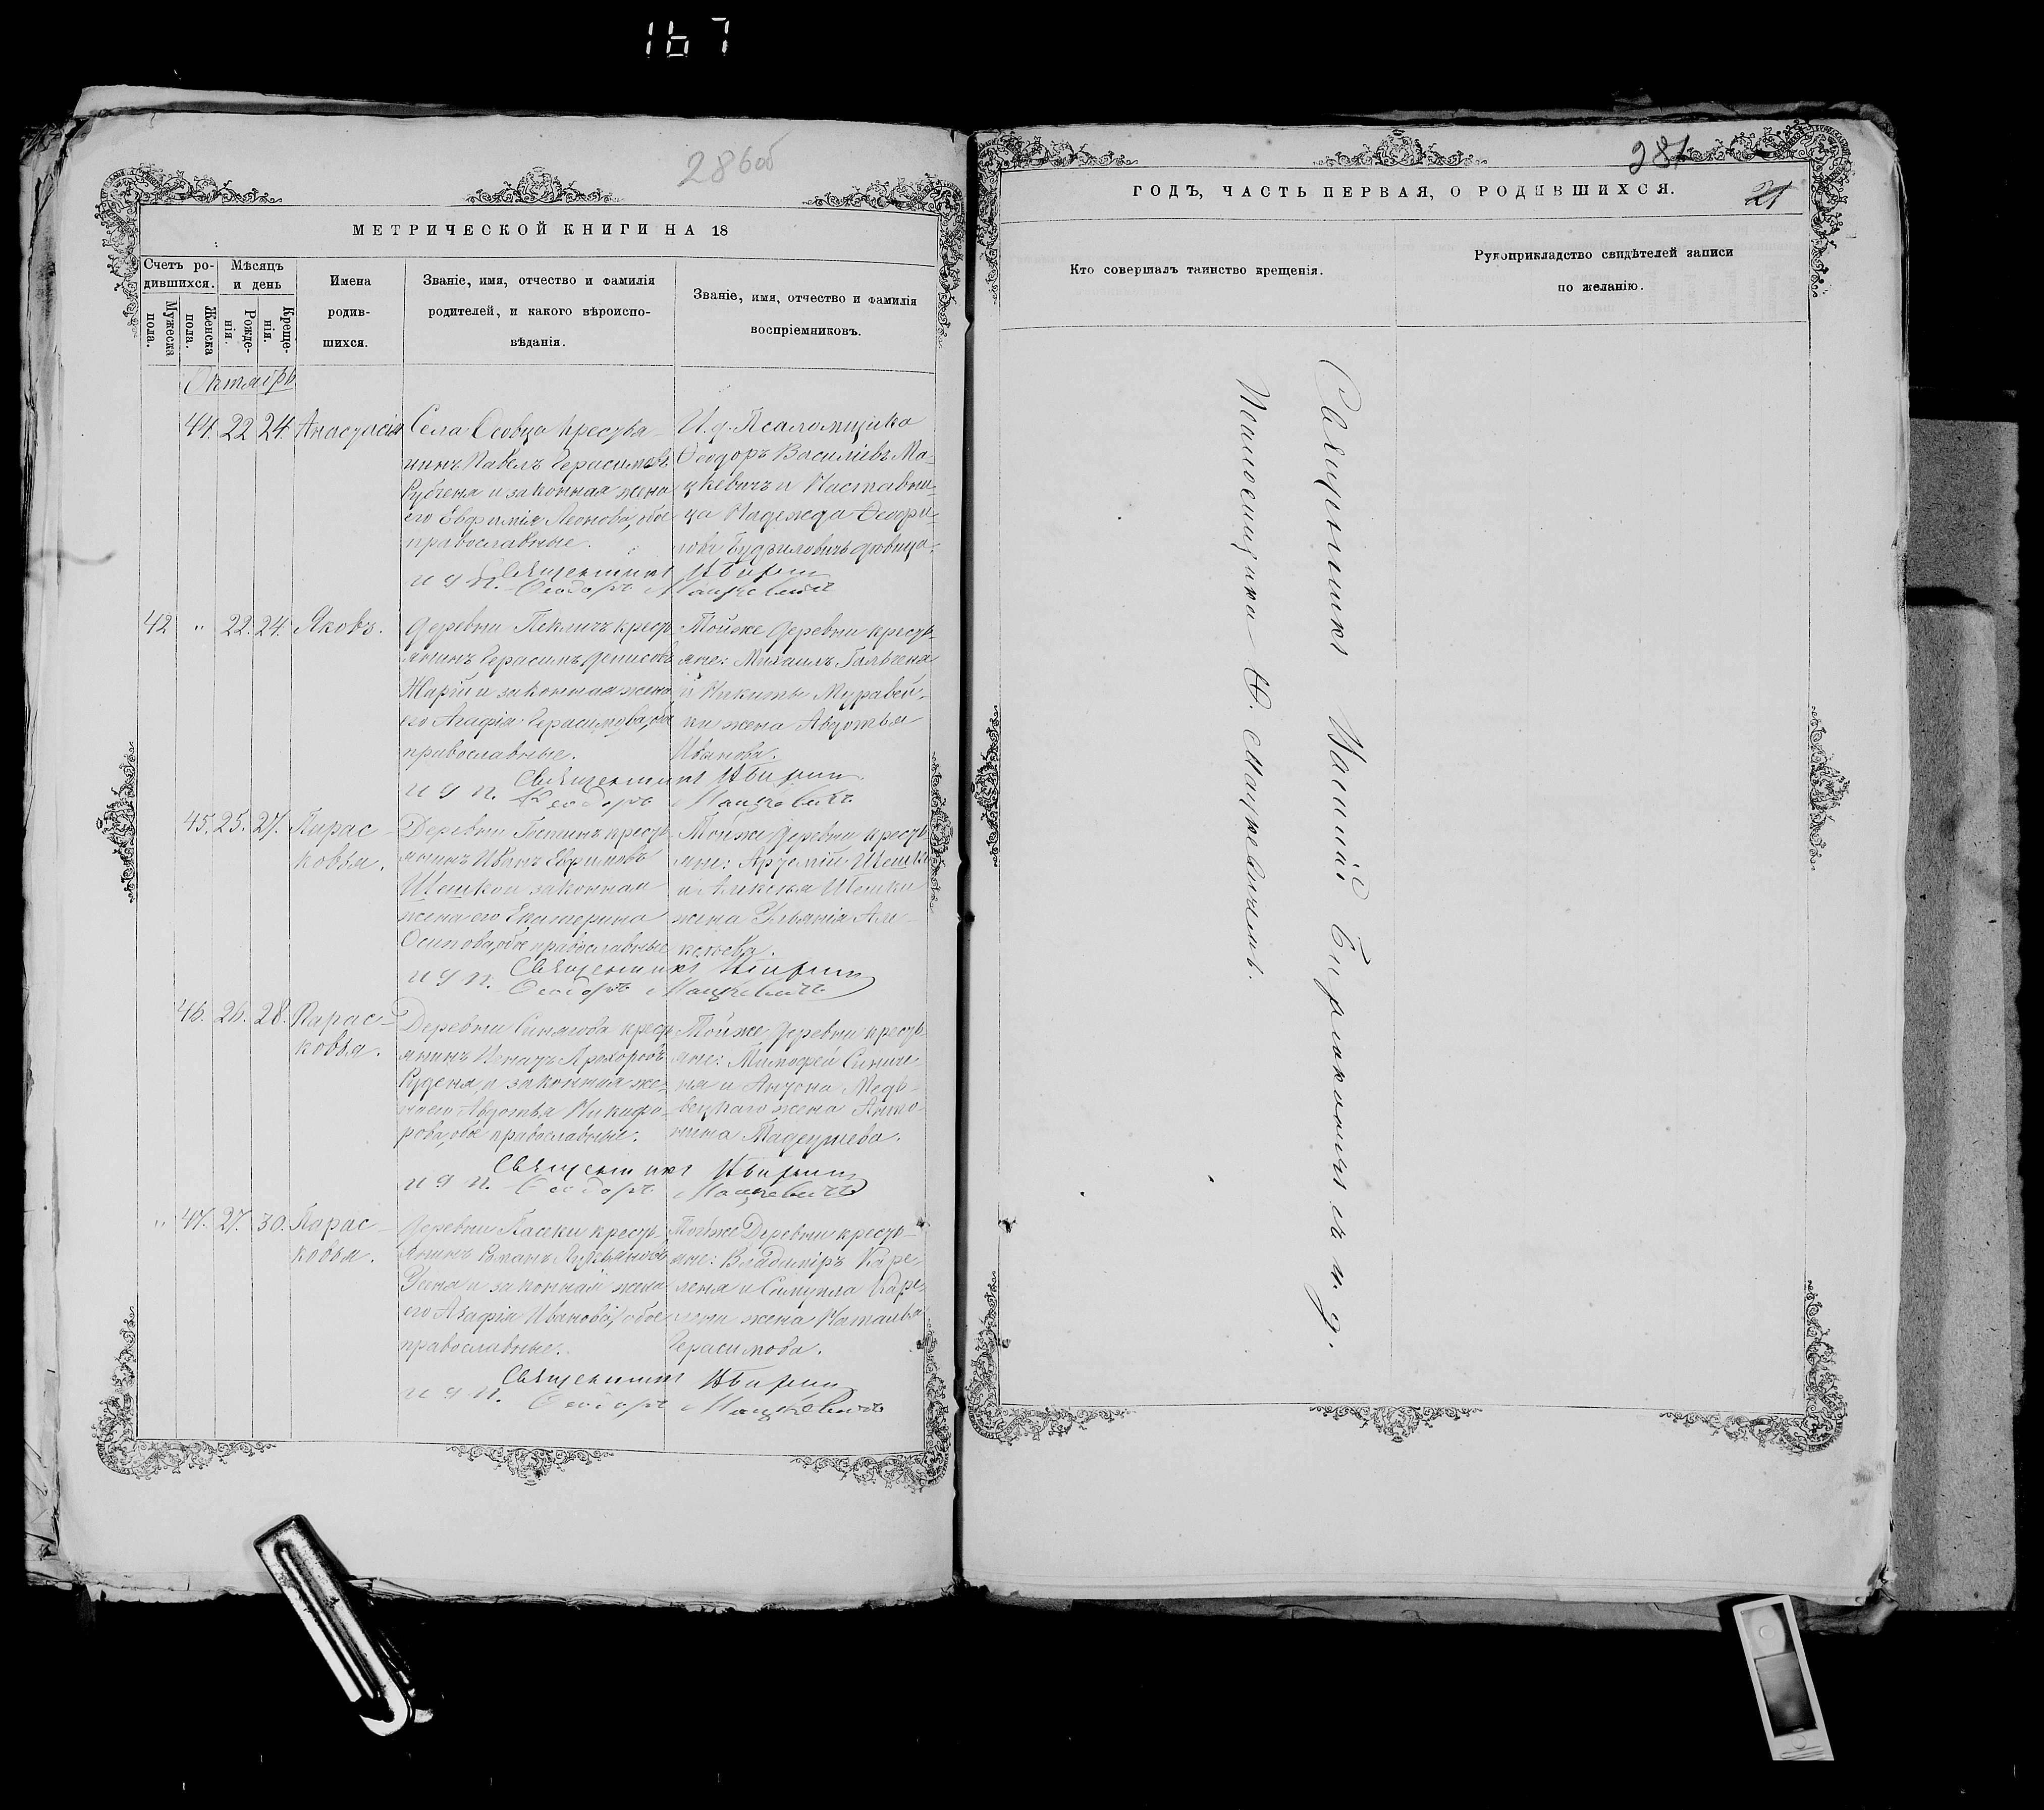 167
286об
МЕТРИЧЕСКОЙ КНИГИ НА 18
Счетъ ро-
дившихся.
Мѣсяцъ
и день
Мужеска
пола.
Женска
пола.
Рожде-
нія.
Креще-
нія.
Имена
родив-
шихся.
Званіе, имя, отчество и фамилія
родителей, и какого вѣроиспо-
вѣданія.
Званіе, имя, отчество и фамилія
воспріемниковъ.
Октябрь.
44. 22 24. Анастасія
Села Осовца крестья-
нинъ Павелъ Герасимовъ
Рубченя и законная жена
его Евфимія Леонова, обое
православные.
И. д. Псаломщика
Ѳеодоръ Василіевъ Ма-
цкевичъ и Наставни-
ца Надежда Ѳеофи-
лова Будзиловичъ дѣвица.
Священникъ
и д п. Ѳеодоръ Мацкевичъ
42 " 22. 24. Яковъ.
Деревни Пекличъ кресть-
янинъ Герасимъ Денисовъ
и законная жена
его Агафія Герасимова, обое
православные.
Тойже деревни кресть-
яне: Михаилъ
и Никиты Муравей-
ки жена Авдотья
Иванова.
Священникъ
и д п. Ѳеодоръ Мацкевичъ
45. 25. 27. Парас-
ковья.
Деревни кресть-
янинъ Иванъ Евфимовъ
Шешко и законная
жена его Екатерина
Осипова, обое православные
Тойже деревни кресть-
яне: Артемій Шешко
и Алексѣя Шешки
жена Ульянія Але-
ксѣева.
Священникъ
и д п. Ѳеодоръ Мацкевичъ
46. 26. 28. Парас-
ковья.
Деревни кресть-
янинъ Игнатъ Прохоровъ
Руденя, и законная же-
на его Авдотья Никифо-
рова, обое православные.
Тойже деревни кресть-
яне: Тимофей
и Антона Медь-
вецкаго жена Анто-
нина Тадеушева.
Священникъ
и д п. Ѳеодоръ Мацкевичъ
" 47. 27. 30. Парас-
ковья.
Деревни Пасеки кресть-
янинъ Романъ Лукьяновъ
и законная жена
его Агафія Иванова, обое
православные.
Тойже Деревни кресть-
яне: Владиміръ Каре-
леня и Самуила Каре-
лени жена Наталья
Герасимова.
Священникъ
и д п. Ѳеодоръ Мацкевичъ
287
21
ГОДЪ, ЧАСТЬ ПЕРВАЯ, О РОДИВШИХСЯ.
Кто совершалъ таинство крещенія.
Рукоприкладство свидѣтелей записи
по желанію.
Священникъ и. д.
Псаломщика Ѳ. Мацкевичемъ.